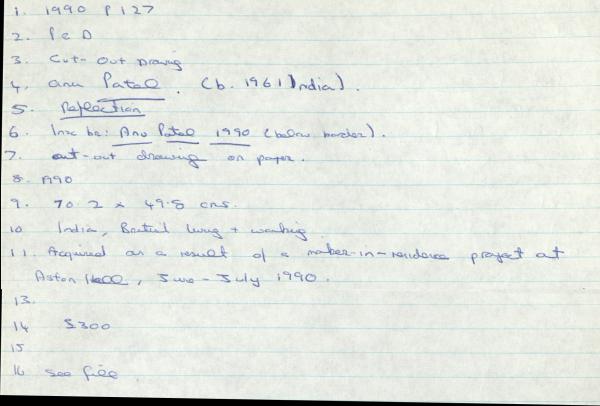 1. 1990 P127
2. P & D
3. Cut-Out Drawing
4. Anu Patel. (b. 1961 India).
5. Reflection
6. Insc be: Anu Patel 1990 (below border).
7. cut-out drawing on paper.
8. 1990
9. 70.2 x 49.8 cms.
10 India, British living + working
11. Acquired as a result of a maker-in-residence project at
Aston Hall, June - July 1990.
13.
14 £300
15
16 see file